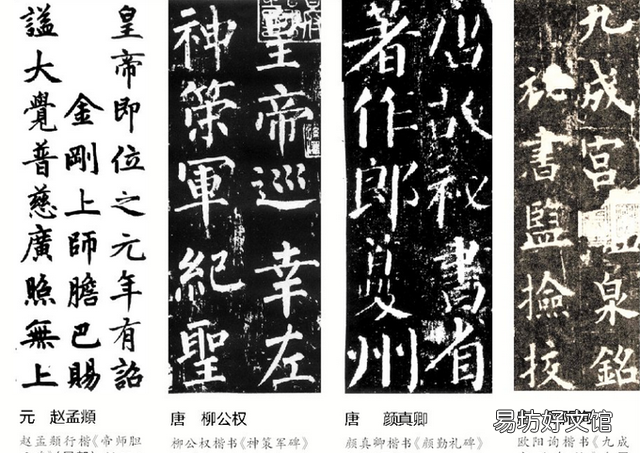 皇帝即位之元年有詔
金剛上師膽巴賜
謚大覺普慈廣照無上
皇帝巡幸左
神策軍紀聖
唐故秘書省
著作郎夔州
九成宮泉銘
秘書監撿挍
元 赵孟頫
唐 柳公权
唐 颜真卿
易坊好文馆
赵孟頫行楷《帝师胆
柳公权楷书《神策军碑》
颜真卿楷书《颜勤礼碑》
欧阳询楷书《九成